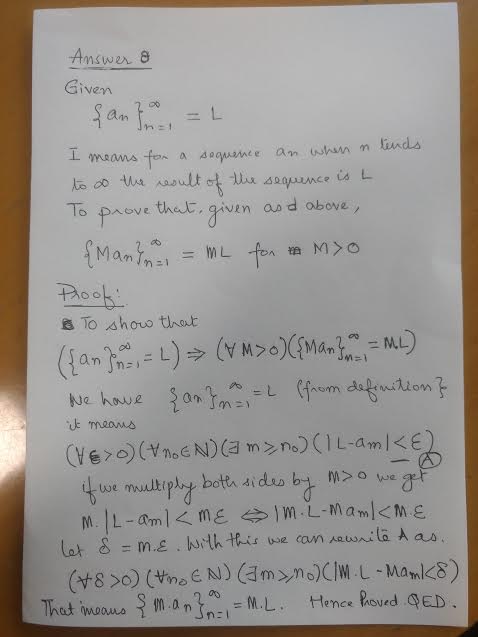 Answer 8
Given
{an}∞n=1 = L
I means for a sequence an when n tends
to ∞ the result of the sequence is L
To prove that, given as above,
{Man}∞n=1 = ML for M>0
Proof:
To show that
({an}∞n=1 = L) ⇒ (∀ M>0)({Man}∞n=1 = M.L)
We have {an}∞n=1 = L (from definition}
it means
(∀ε>0)(∀n₀∈N)(∃m≥n₀)(|L-am|<ε) A
if we multiply both sides by M>0 we get
M.|L-am|<Mε ⇔ |M.L-Mam|<M.ε
Let δ = M.ε. With this we can rewrite A as.
(∀δ>0)(∀n₀∈N)(∃m≥n₀)(|M.L-Mam|<δ)
That means {M.an}∞n=1 = M.L. Hence Proved. QED.